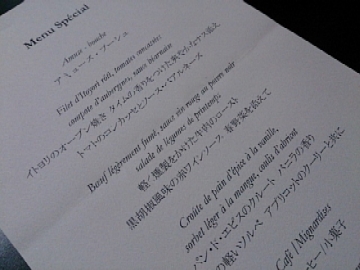 Menu Spécial
Amuse - bouche
アミューズ・ブーシュ
Filet d'Itoyori rôti, tomates concassées
compote d'aubergines, sauce béarnaise
イトヨリのオーブン焼き タイムの香りをつけた
トマトのコンカッセとソース・ベアルネーズ
Bœuf légèrement fumé, sauce vin rouge au poivre noir
salade de légumes de printemps
軽く燻製をかけた牛肉のロースト
黒胡椒風味の赤ワインソース 春野菜を添えて
Croûte de pain d'épice à la vanille,
sorbet léger à la mangue, coulis d'abricot
パン・ド・エピスのクルート バニラの香り
の軽いソルベ アプリコットのクーリーと共に
Café / Mignardises
ーヒー / 小菓子